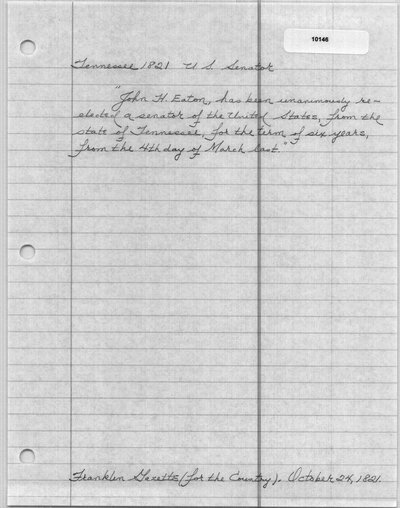 10146
Tennessee 1821 U.S. Senator
"John H. Eaton, has been unanimously re-
elected a senator of the United States, from the
state of Tennessee, for the term of six years,
from the 4th day of March last."
Franklin Gazette (for the Country). October 24, 1821.